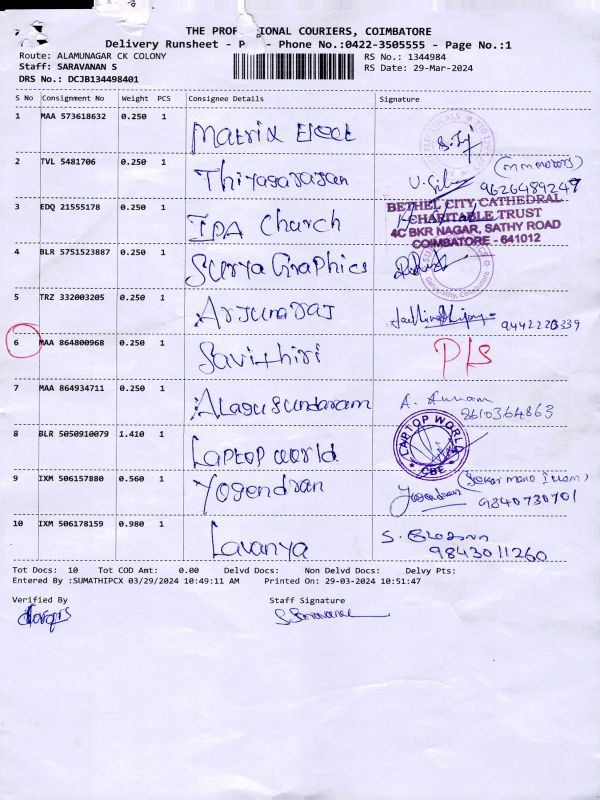 THE PROF IONAL COURIERS, COIMBATORE
Delivery Runsheet - P - Phone No.:0422-3505555 - Page No.:1
Route: ALAMUNAGAR CK COLONY RS No.: 1344984
Staff: SARAVANAN S RS Date: 29-Mar-2024
DRS No.: DCJB134498401
S No Consignment No Weight PCS Consignee Details Signature
1 MAA 573618632 0.250 1 Matrix Elect
2 TVL 5481706 0.250 1 Thiyagarajan (m m motors)
9626489247
3 EDQ 21555178 0.250 1 IPA Church
BETHEL CITY CATHEDRAL
CHARITABLE TRUST
4C BKR NAGAR, SATHY ROAD
COIMBATORE - 641012
4 BLR 5751523887 0.250 1 Surya Graphics
5 TRZ 332003205 0.250 1 Arjunaraj 9442220339
6 MAA 864800968 0.250 1 Savithiri P/S
7 MAA 864934711 0.250 1 Alagu Sundaram
8610364863
8 BLR 5050910079 1.410 1 Laptop world
LAPTOP WORLD
CBE
9 IXM 506157880 0.560 1 Yogendran Yogendran 9840730701
10 IXM 506178159 0.980 1 Lavanya
9843011260
Tot Docs: 10 Tot COD Amt: 0.00 Delvd Docs: Non Delvd Docs: Delvy Pts:
Entered By :SUMATHIPCX 03/29/2024 10:49:11 AM Printed On: 29-03-2024 10:51:47
Verified By Staff Signature